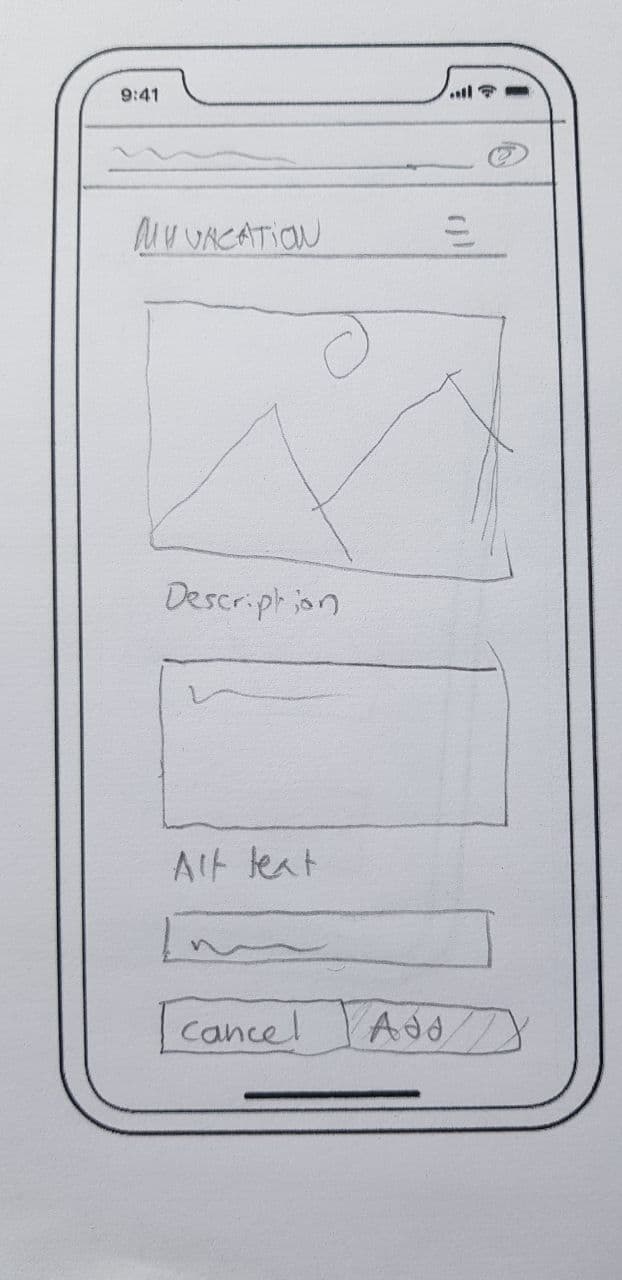 9:41
MY VACATION
Description
Alt text
Cancel Add